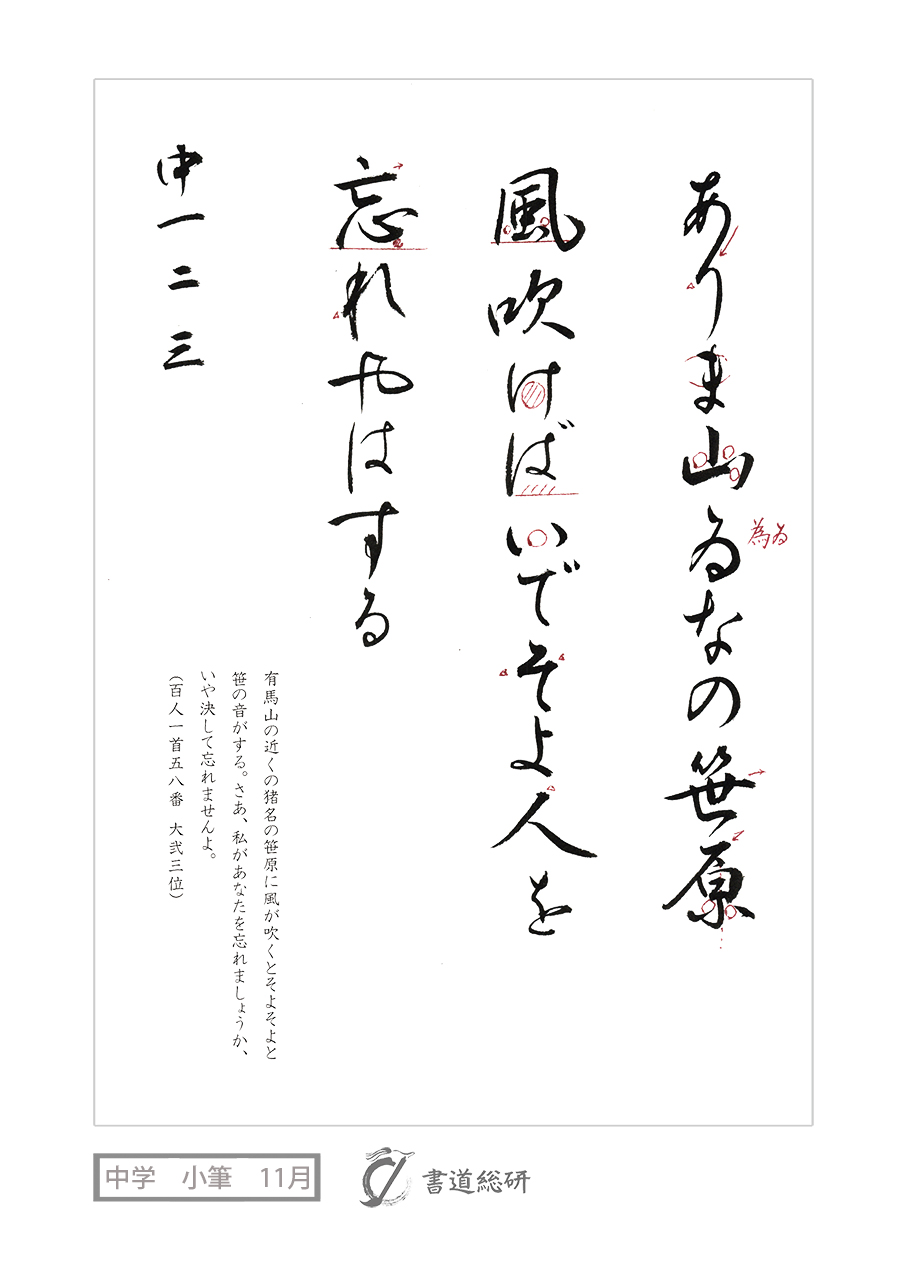 ありま山ゐなの笹原
為ゐ
風吹けばいでそよ人を
忘れやはする
中一二三
有馬山の近くの猪名の笹原に風が吹くとそよそよと
笹の音がする。さあ、私があなたを忘れましょうか、
いや決して忘れませんよ。
(百人一首五八番 大弐三位)
中学 小筆 11月
書道総研